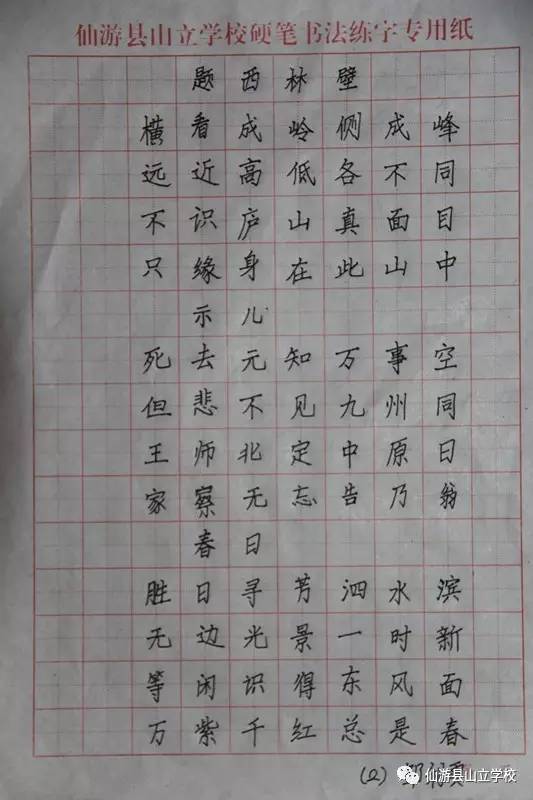 仙游县山立学校硬笔书法练字专用纸
题西林壁
横看成岭侧成峰
远近高低各不同
不识庐山真面目
只缘身在此山中
示儿
死去元知万事空
但悲不见九州同
王师北定中原日
家察无忘告乃翁
春日
胜日寻芳泗水滨
无边光景一时新
等闲识得东风面
万紫千红总是春
(2)
仙游县山立学校